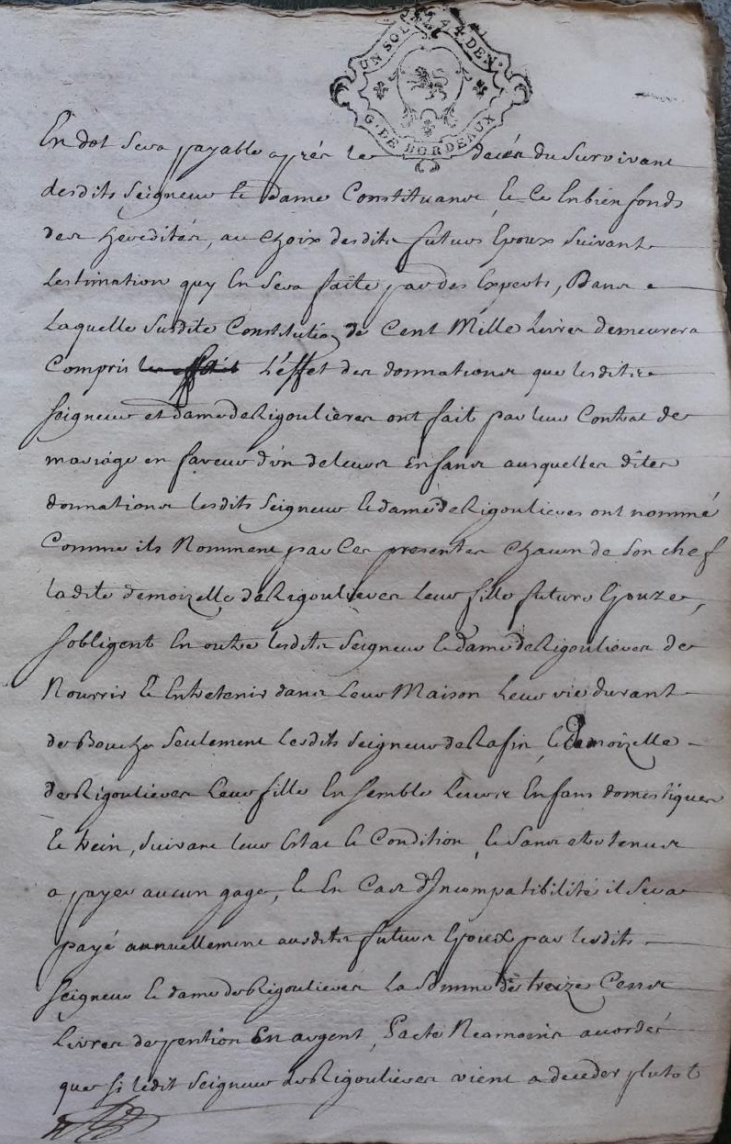 UN SOL 4 DEN.
G. DE BORDEAUX
En dot sera payable après le decés du Survivant
desdits Seigneur Et Dame Constituans, Et Ce En bien fonds
des heredités, au choix desdits futurs Epoux Suivant
Lestimation quy En Sera faite par des Experts, Dans
Laquelle Susdite Constitution de Cent Mille Livres demeurera
Compris L'effet des donnations que lesdits
Seigneur et dame de Rigoulieres ont fait par leur Contrat de
mariage en faveur d'un de leurs Enfans ausquelles dites
donnations lesdits Seigneur Et dame de Rigoulieres ont nommé
Comme ils Nomment par Ces presentes chacun de Son chef
ladite demoizelle de Rigoulieres leur fille future Epouze,
Sobligent En outre lesdits Seigneur Et dame de Rigoulieres de
Nourrir Et Entretenir dans Leur Maison Leur vie durant
de Bouche Seulement lesdits Seigneur de Rafin, Et Demoizelle
de Rigoulieres Leur fille En semble Leurs Enfans domestiques
Et trein, Suivant leur Estat Et Condition, Et Sans etre tenus
a payer aucun gage, Et En Cas d'Incompatibilité il Sera
payé annuellement ausdits futurs Epoux par lesdits
Seigneur Et dame de Rigoulieres la Somme de treize Cens
Livres de pention En argent, Pacte Neamoins accordé
que si ledit Seigneur de Rigoulieres vient a deceder plutot